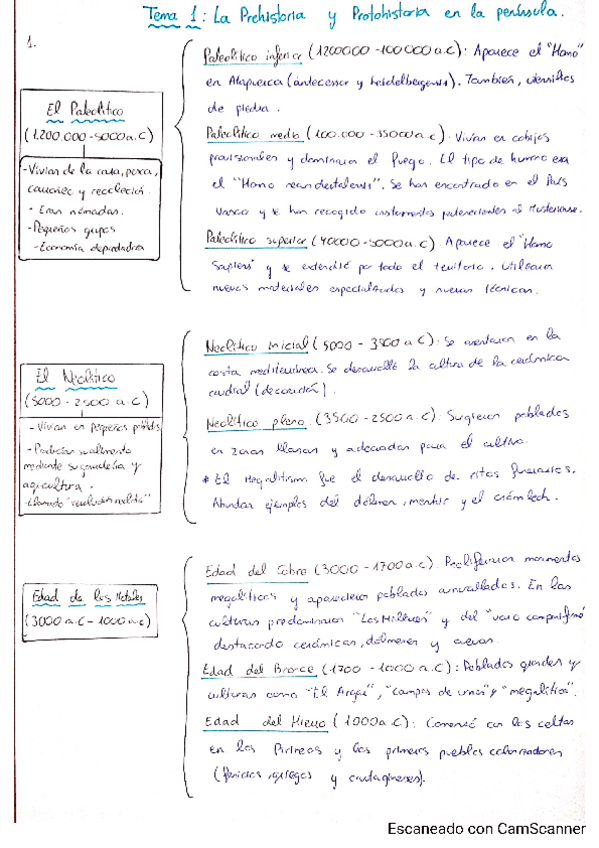 Tema 1: La Prehistoria y Protohistoria en la península.
1.
El Paleolítico
(1.200.000-5000 a.C)
- Vivían de la caza, pesca,
carroñeo y recolección.
- Eran nómadas.
- Pequeños grupos
- Economía depredadora
Paleolítico inferior (1200000-100000 a.C): Aparece el "Homo"
en Atapuerca (antecessor y heidelbergensis). También, utensilios
de piedra.
Paleolítico medio (100.000-35000 a.c). Vivían en cobijos
provisionales y dominaron el fuego. El tipo de humano era
el "Homo neandertalensis". Se han encontrado en el País
Vasco y se han recogido instrumentos pertenecientes al Musteriense.
Paleolítico superior (40000-5000 a.c). Aparece el "Homo
Sapiens" y se extendió por todo el territorio. Utilizaron
nuevos materiales especializados y nuevas técnicas.
El Neolítico
(5000-2500 a.C)
- Vivían en pequeños poblados
- Producían su alimento
mediante su ganadería y
agricultura.
- Llamado "revolución neolítica"
Neolítico inicial (5000-3500 a.C): Se asentaron en la
costa mediterránea. Se desarrolló la cultura de la cerámica
cardial (decoración).
Neolítico pleno (3500-2500 a.C): Surgieron poblados
en zonas llanas y adecuadas para el cultivo.
* El Megalitismo fue el desarrollo de ritos funerarios.
Abundan ejemplos del dólmen, menhir y el crómlech.
Edad de los Metales
(3000 a.C-1000 a.c)
Edad del Cobre (3000-1700 a.C). Proliferaron monumentos
megalíticos y aparecieron poblados amurallados. En las
culturas predominaron "Los Millares" y del "vaso campaniforme"
destacando cerámicas, dólmenes y cuevas.
Edad del Bronce (1700-1000 a.C): Poblados grandes y
culturas como "El Argar", "campos de urnas" y "megalítica".
Edad del Hierro (1000 a.C): Comenzó con los celtas
en los Pirineos y los primeros pueblos colonizadores
(fenicios, griegos y cartagineses).
Escaneado con CamScanner